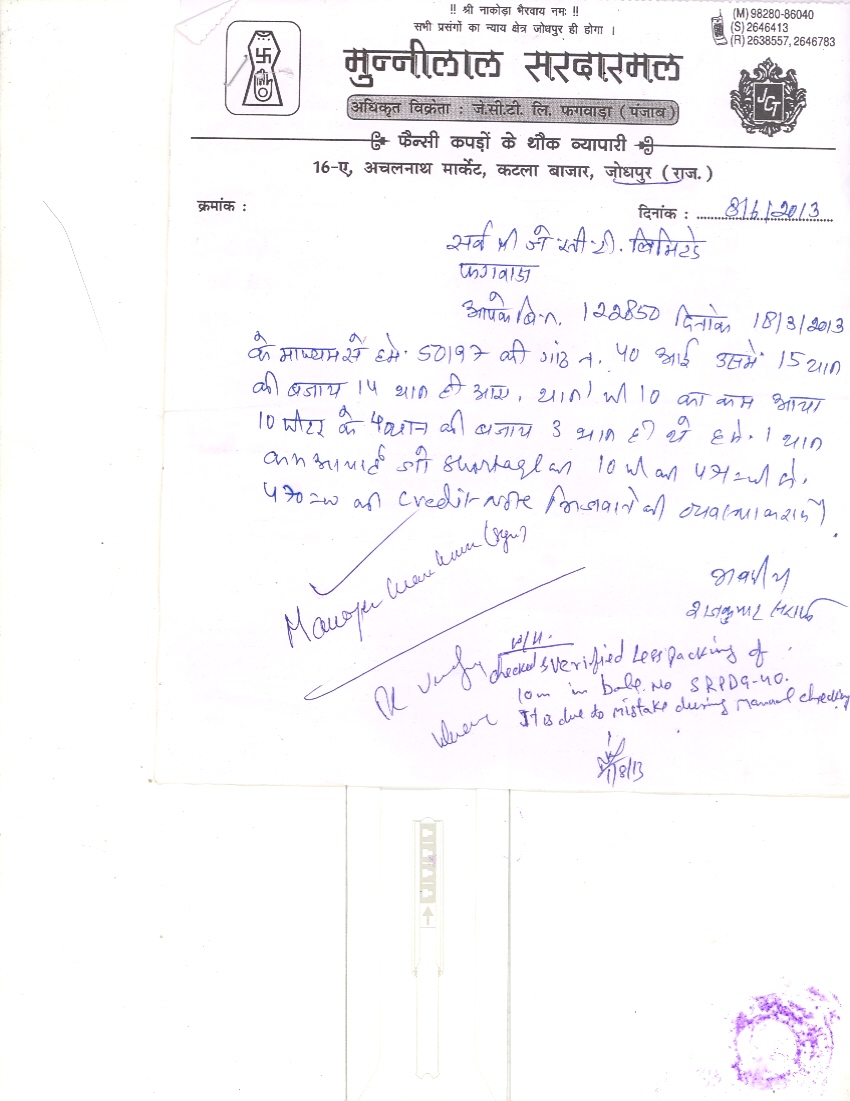 !! श्री नाकोड़ा भैरवाय नमः !!
सभी प्रसंगों का न्याय क्षेत्र जोधपुर ही होगा ।
(M) 98280-86040
(S) 2646413
(R) 2638557, 2646783
मुन्नीलाल सरदारमल
JCT
अधिकृत विक्रेता : जे.सी.टी. लि. फगवाड़ा (पंजाब)
फैन्सी कपड़ों के थौक व्यापारी
16-ए, अचलनाथ मार्केट, कटला बाजार, जोधपुर (राज.)
क्रमांक :
दिनांक : 8/6/2013
सर्व श्री जे सी टी. लिमिटेड
फगवाडा
आपके बि.न. 122850 दिनांक 18/3/2013
के माध्यम से हमे 50197 की गांठ न. 40 आई उसमें 15 थान
की बजाय 14 थान ही आए, थान 1 मी 10 का कम आया
10 मीटर के 4 थान की बजाय 3 थान ही थे हमे 1 थान
कम आया है जो Shortage का 10 मी का
की Credit Note भिजवाने की व्यवस्था करावें
भवदीय
राजकुमार
Manager
checked & verified Less packing of
10m in bale No SRPD9-40.
It is due to mistake during manual checking